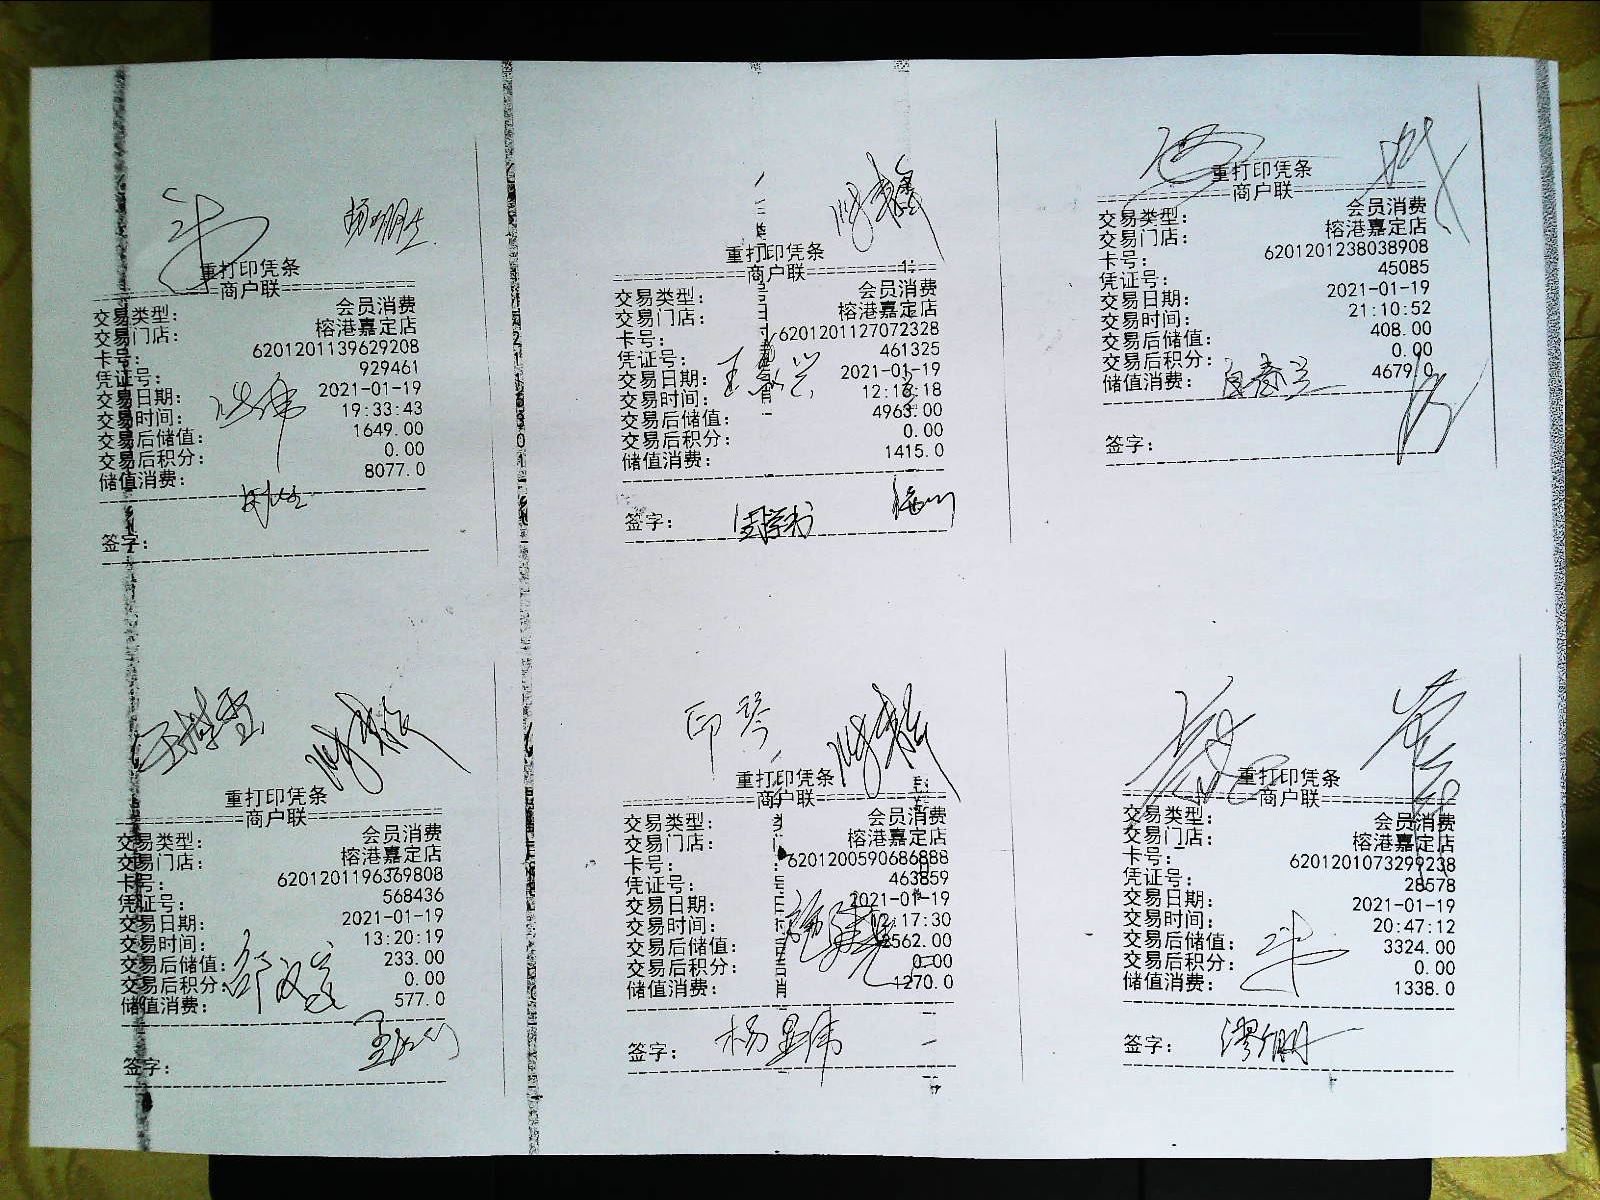 重打印凭条
商户联
交易类型: 会员消费
交易门店: 榕港嘉定店
卡号: 6201201139629208
凭证号: 929461
交易日期: 2021-01-19
交易时间: 19:33:43
交易后储值: 1649.00
交易后积分: 0.00
储值消费: 8077.0
签字:
重打印凭条
商户联
交易类型: 会员消费
交易门店: 榕港嘉定店
卡号: 6201201127072328
凭证号: 461325
交易日期: 2021-01-19
交易时间: 12:18:18
交易后储值: 4963.00
交易后积分: 0.00
储值消费: 1415.0
签字:
重打印凭条
商户联
交易类型: 会员消费
交易门店: 榕港嘉定店
卡号: 6201201238038908
凭证号: 45085
交易日期: 2021-01-19
交易时间: 21:10:52
交易后储值: 408.00
交易后积分: 0.00
储值消费: 4679.0
签字:
重打印凭条
商户联
交易类型: 会员消费
交易门店: 榕港嘉定店
卡号: 6201201196369808
凭证号: 568436
交易日期: 2021-01-19
交易时间: 13:20:19
交易后储值: 233.00
交易后积分: 0.00
储值消费: 577.0
签字:
印琴
重打印凭条
商户联
交易类型: 会员消费
交易门店: 榕港嘉定店
卡号: 6201200590686888
凭证号: 463859
交易日期: 2021-01-19
交易时间: :17:30
交易后储值: 2562.00
交易后积分: 0.00
储值消费: 1270.0
签字: 杨显伟
重打印凭条
商户联
交易类型: 会员消费
交易门店: 榕港嘉定店
卡号: 6201201073299238
凭证号: 28578
交易日期: 2021-01-19
交易时间: 20:47:12
交易后储值: 3324.00
交易后积分: 0.00
储值消费: 1338.0
签字: